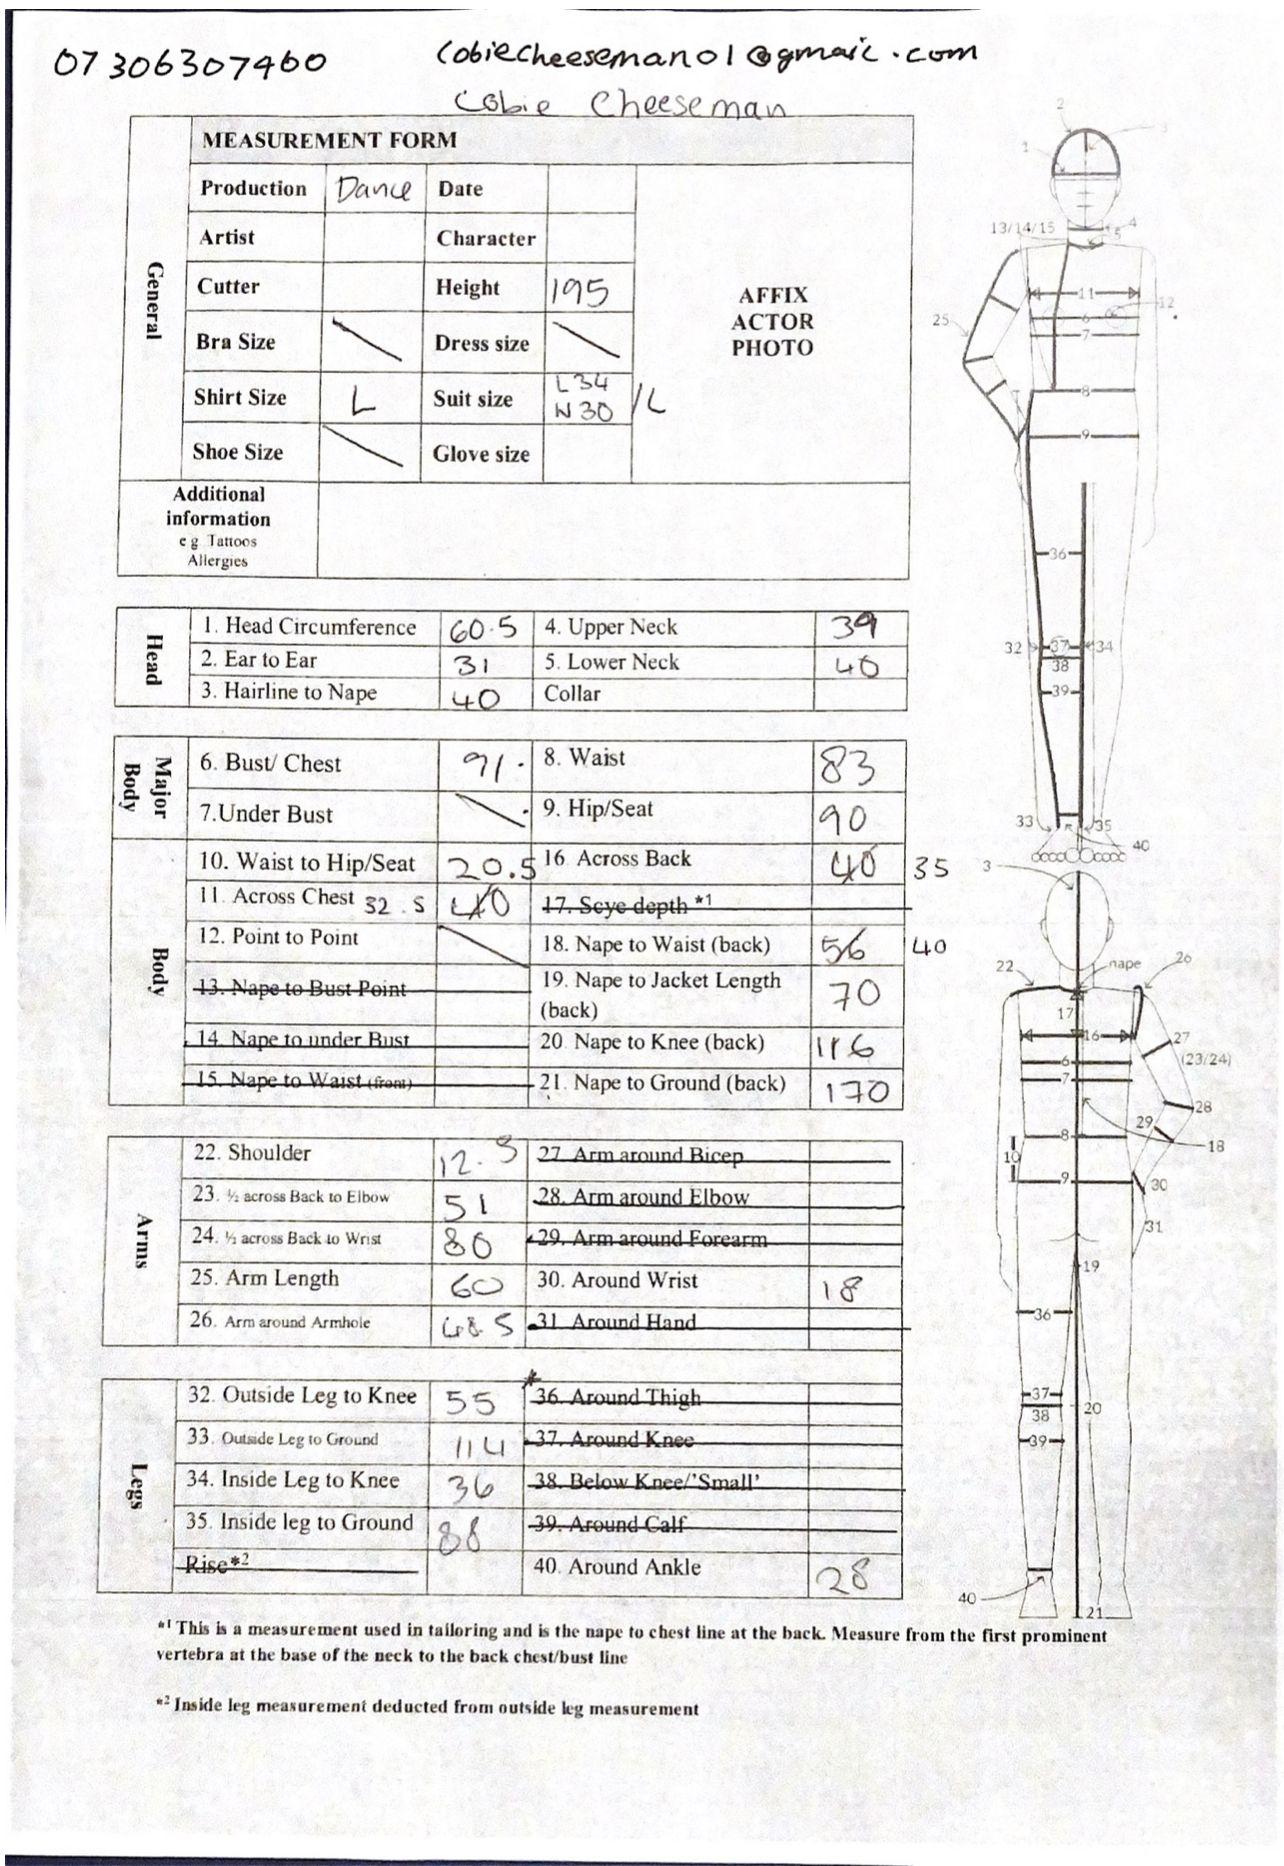 07306307460
cobiecheeseman01@gmail.com
Cobie Cheeseman
MEASUREMENT FORM
General
Production Dance Date
Artist Character
Cutter Height 195
AFFIX
ACTOR
PHOTO
Bra Size Dress size
Shirt Size L Suit size L34
W30 /L
Shoe Size Glove size
Additional
information
e g Tattoos
Allergies
Head
1. Head Circumference 60.5 4. Upper Neck 39
2. Ear to Ear 31 5. Lower Neck 40
3. Hairline to Nape 40 Collar
Major
Body
6. Bust/ Chest 91. 8. Waist 83
7.Under Bust 9. Hip/Seat 90
Body
10. Waist to Hip/Seat 20.5 16 Across Back 40 35
11. Across Chest 32.5 40 17. Scye depth *1
12. Point to Point 18. Nape to Waist (back) 56 40
13. Nape to Bust Point 19. Nape to Jacket Length
(back) 70
14. Nape to under Bust 20. Nape to Knee (back) 116
15. Nape to Waist (front) 21. Nape to Ground (back) 170
Arms
22. Shoulder 12.5 27. Arm around Bicep
23. ½ across Back to Elbow 51 28. Arm around Elbow
24. ½ across Back to Wrist 80 29. Arm around Forearm
25. Arm Length 60 30. Around Wrist 18
26. Arm around Armhole 31. Around Hand
Legs
32. Outside Leg to Knee 55 36. Around Thigh
33. Outside Leg to Ground 114 37. Around Knee
34. Inside Leg to Knee 36 38. Below Knee/'Small'
35. Inside leg to Ground 88 39. Around Calf
Rise*2 40. Around Ankle 28
*1 This is a measurement used in tailoring and is the nape to chest line at the back. Measure from the first prominent
vertebra at the base of the neck to the back chest/bust line
*2 Inside leg measurement deducted from outside leg measurement
2
1
3
4
13/14/15
5
11
12
6
25
7
8
9
36
32
37
34
38
39
33
35
40
3
nape
26
22
17
16
27
(23/24)
6
7
28
29
8
18
10
9
30
31
19
36
37
38
20
39
40
21